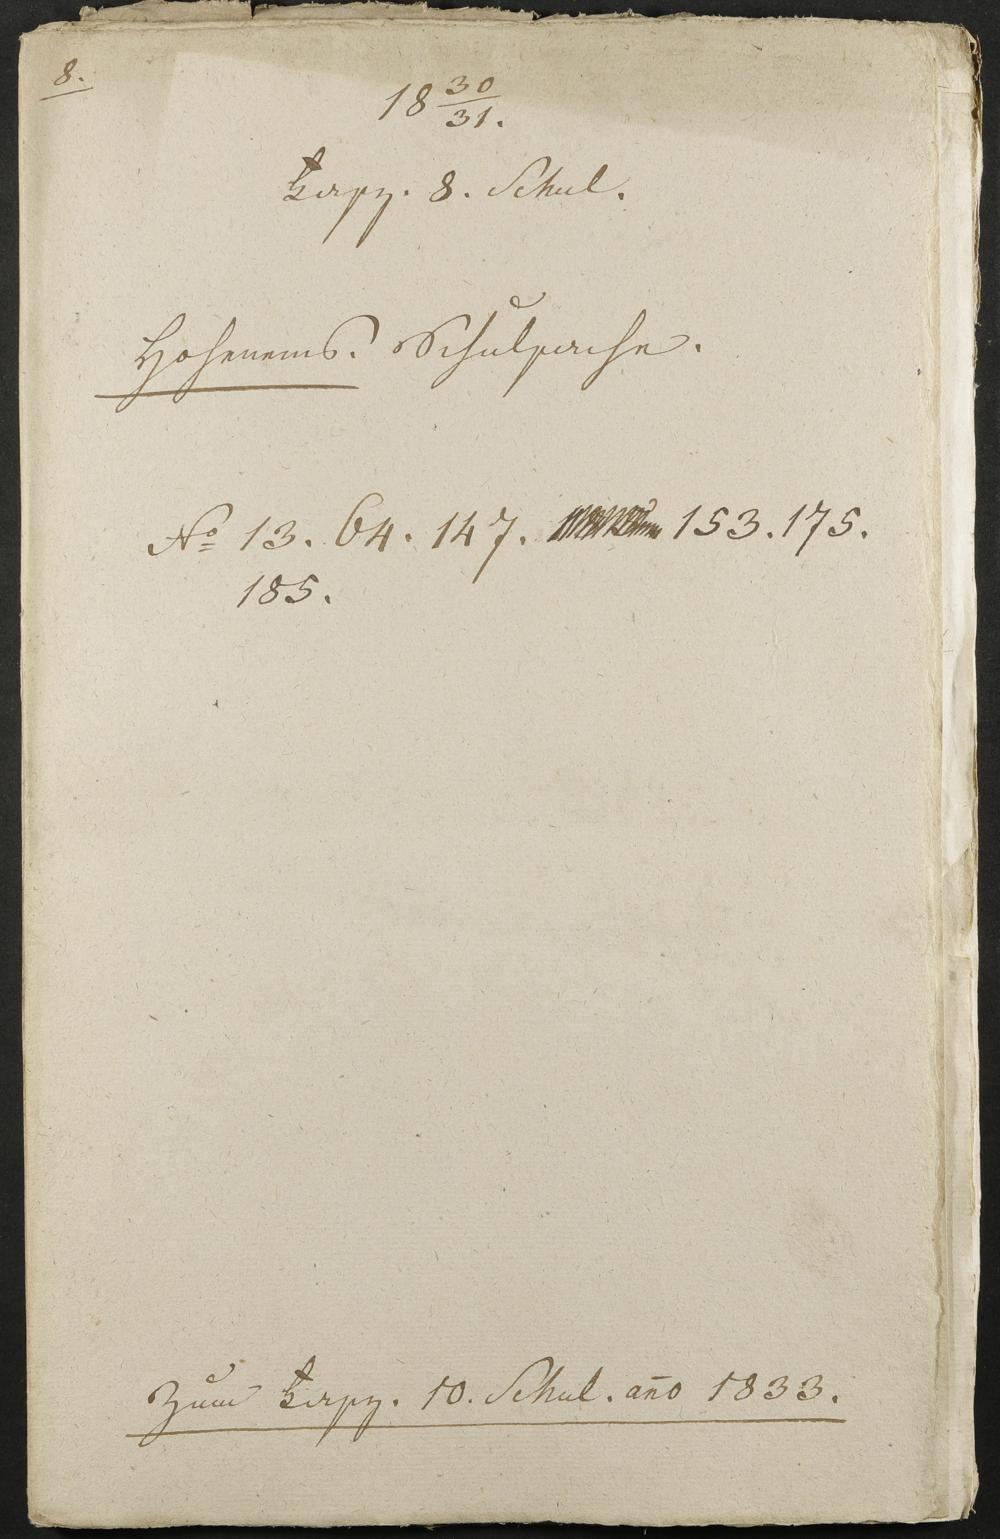 8.
18 30/31.
Fasz. 8. Schul.
Hohenems. Schulsache.
No 13. 64. 147. 153. 175.
185.
Zum Fasz. 10. Schul. año 1833.